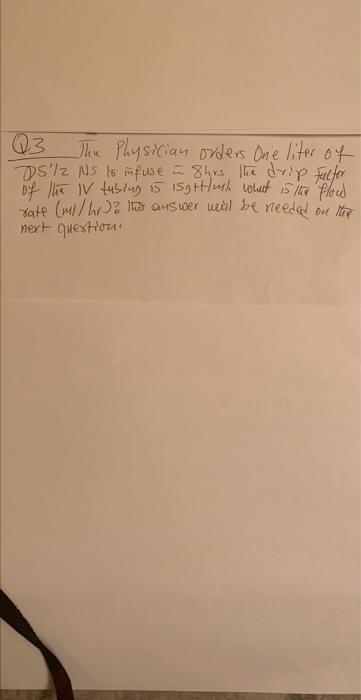 Q3 The Physician orders One liter of
D5 1/2 NS to infuse in 8hrs. The drip factor
of the IV tubing is 15gtt/mL what is the flow
rate (ml/hr)? this answer will be needed on the
next question.